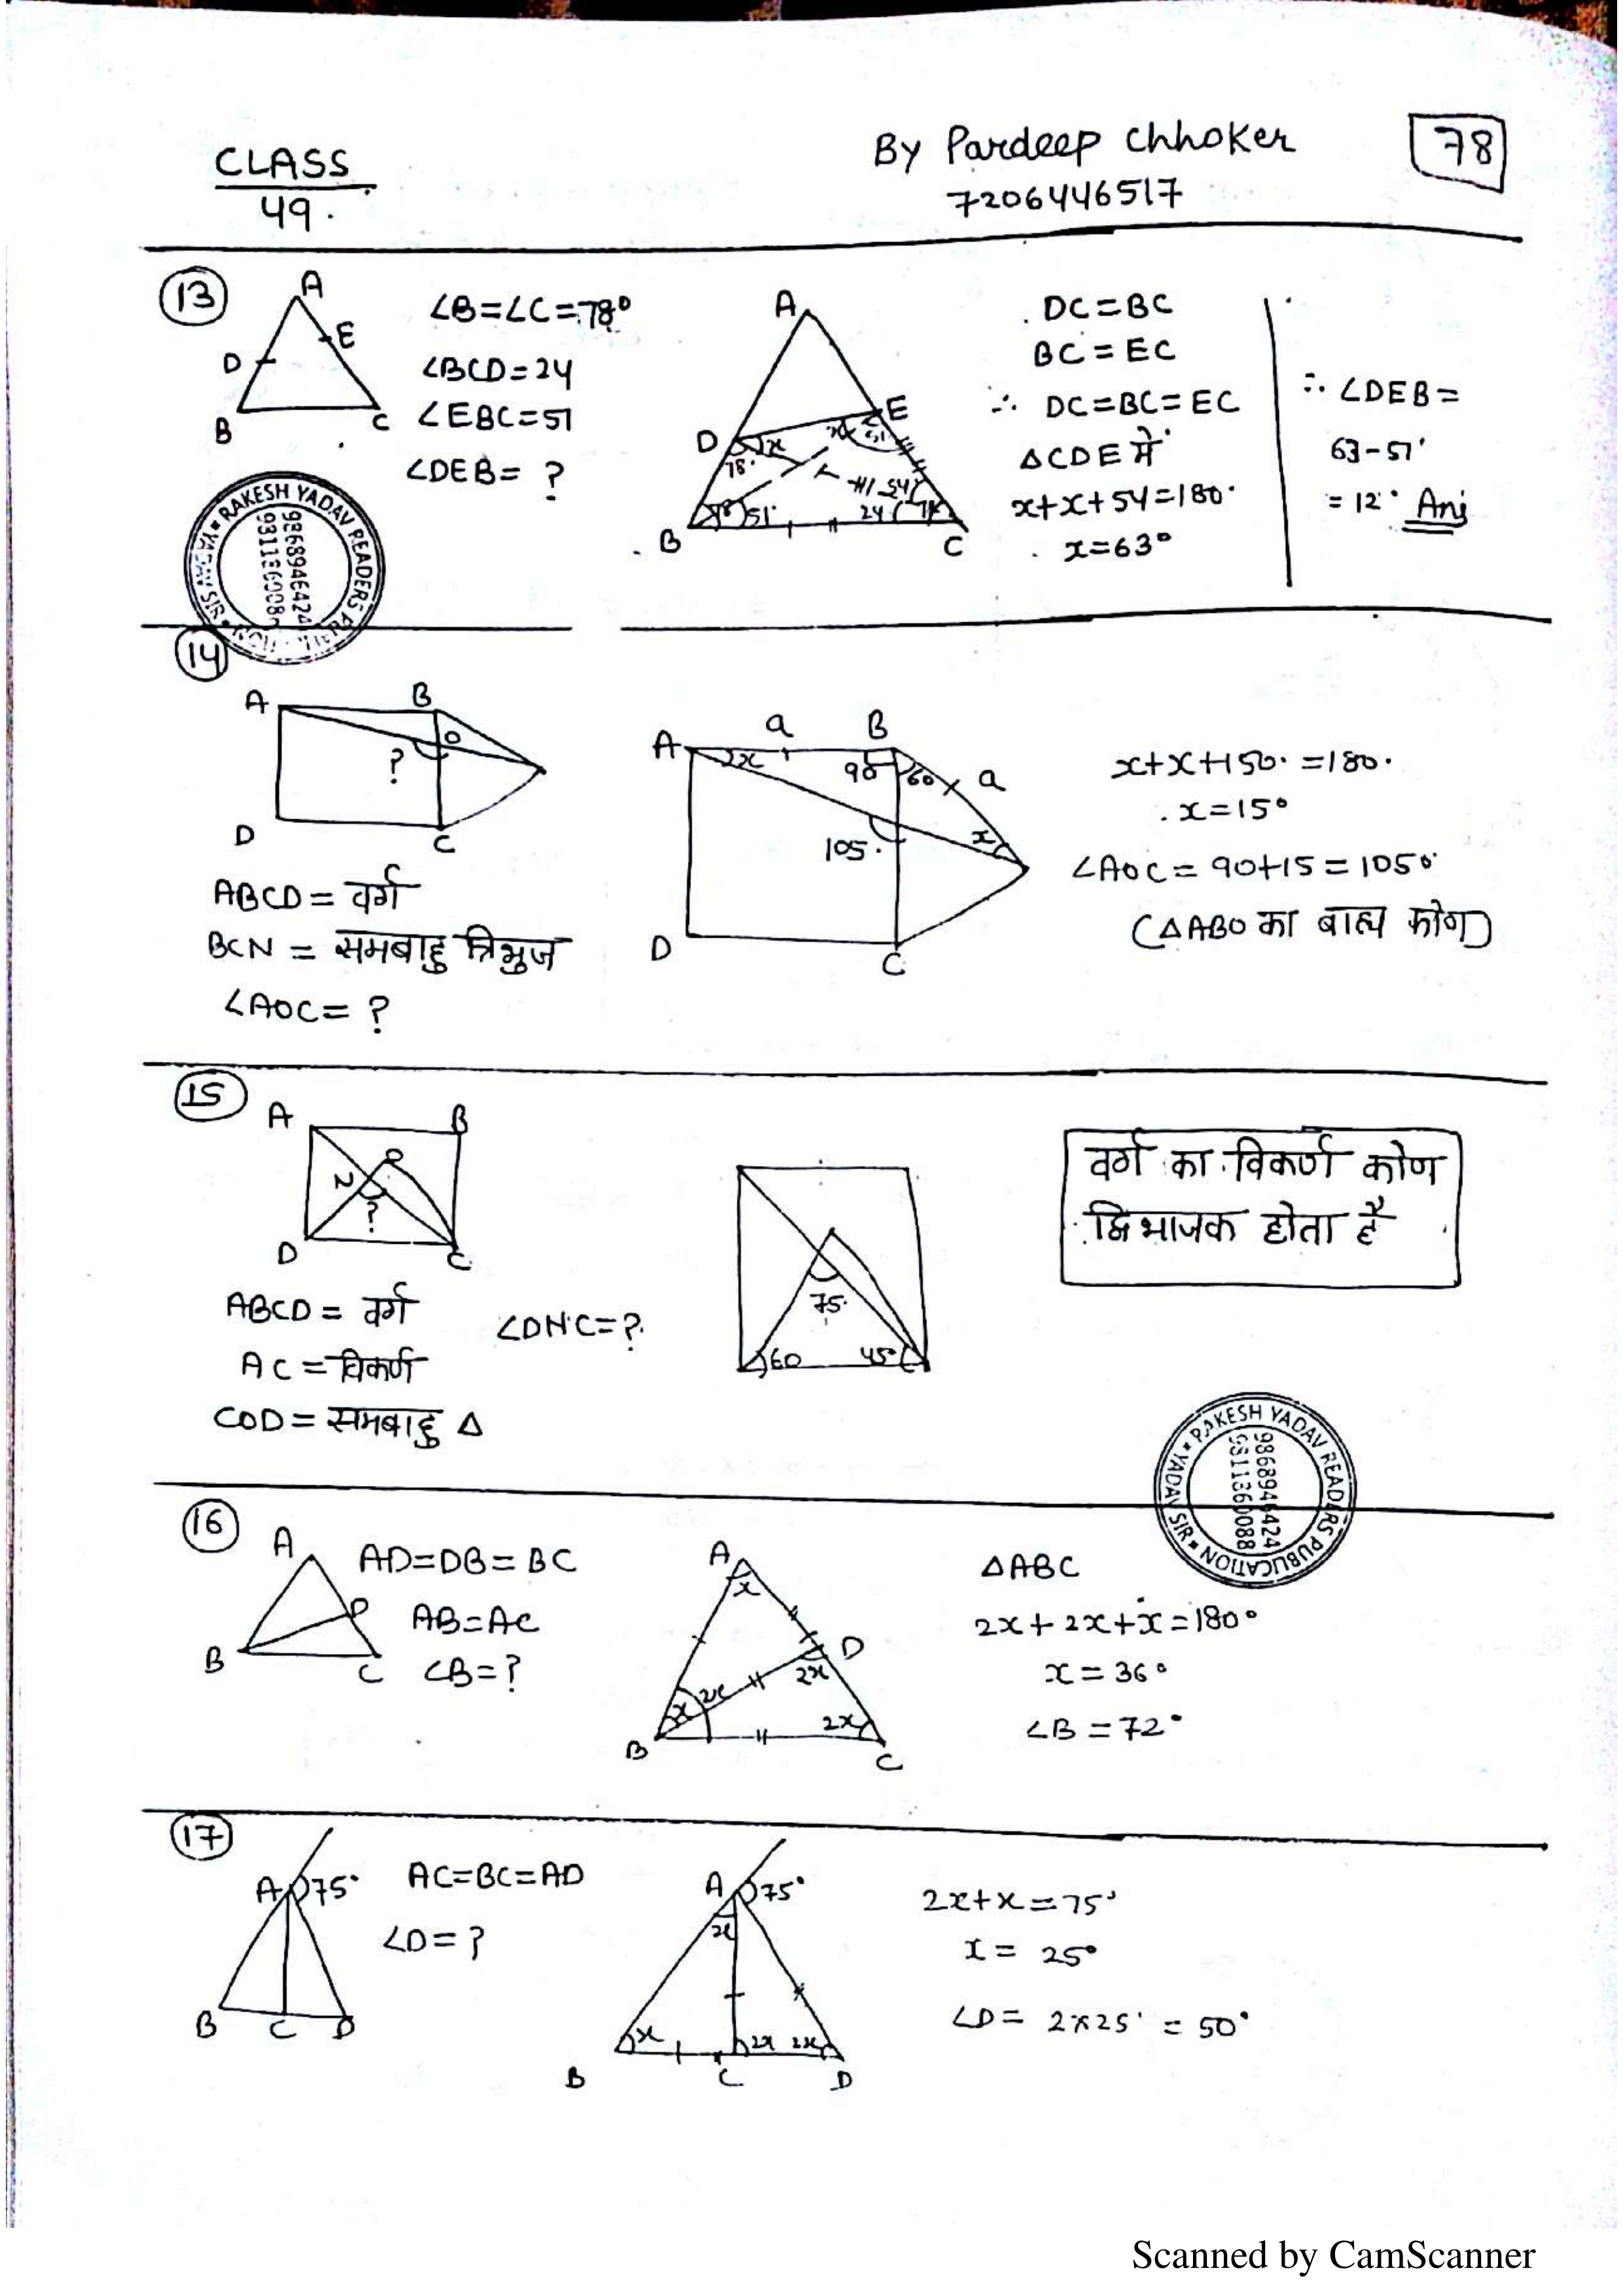 CLASS
49.
By Pardeep Chhoker
7206446517
78
13
A
E
D
B
C
∠B=∠C=78°
∠BCD=24
∠EBC=51
∠DEB= ?
A
E
D
x
x
51
78°
54
78
51°
24
78
B
C
DC=BC
BC=EC
∴ DC=BC=EC
△CDE में
x+x+54=180°
x=63°
∴ ∠DEB=
63-51°
=12° Ans
RAKESH YADAV READERS PUBLICATION
YADAV SIR
9868946424
9311360088
14
A
B
O
?
D
C
ABCD = वर्ग
BCN = समबाहु त्रिभुज
∠AOC= ?
A
a
B
x
90
60
a
105°
x
D
C
x+x+150°=180°
x=15°
∠AOC = 90+15 = 105°
(△ABO का बाह्य कोण)
15
A
B
O
N
?
D
C
ABCD = वर्ग
AC = विकर्ण
COD = समबाहु △
∠DNC=?
75°
60
45°
वर्ग का विकर्ण कोण
द्विभाजक होता है
RAKESH YADAV READERS PUBLICATION
YADAV SIR
9868946424
9311360088
16
A
D
B
C
AD=DB=BC
AB=AC
∠B=?
A
x
D
2x
2x
x
2x
B
C
△ABC
2x+2x+x=180°
x=36°
∠B=72°
17
A
75°
B
C
D
AC=BC=AD
∠D=?
A
75°
x
x
2x
2x
B
C
D
2x+x=75°
x= 25°
∠D= 2×25° = 50°
Scanned by CamScanner